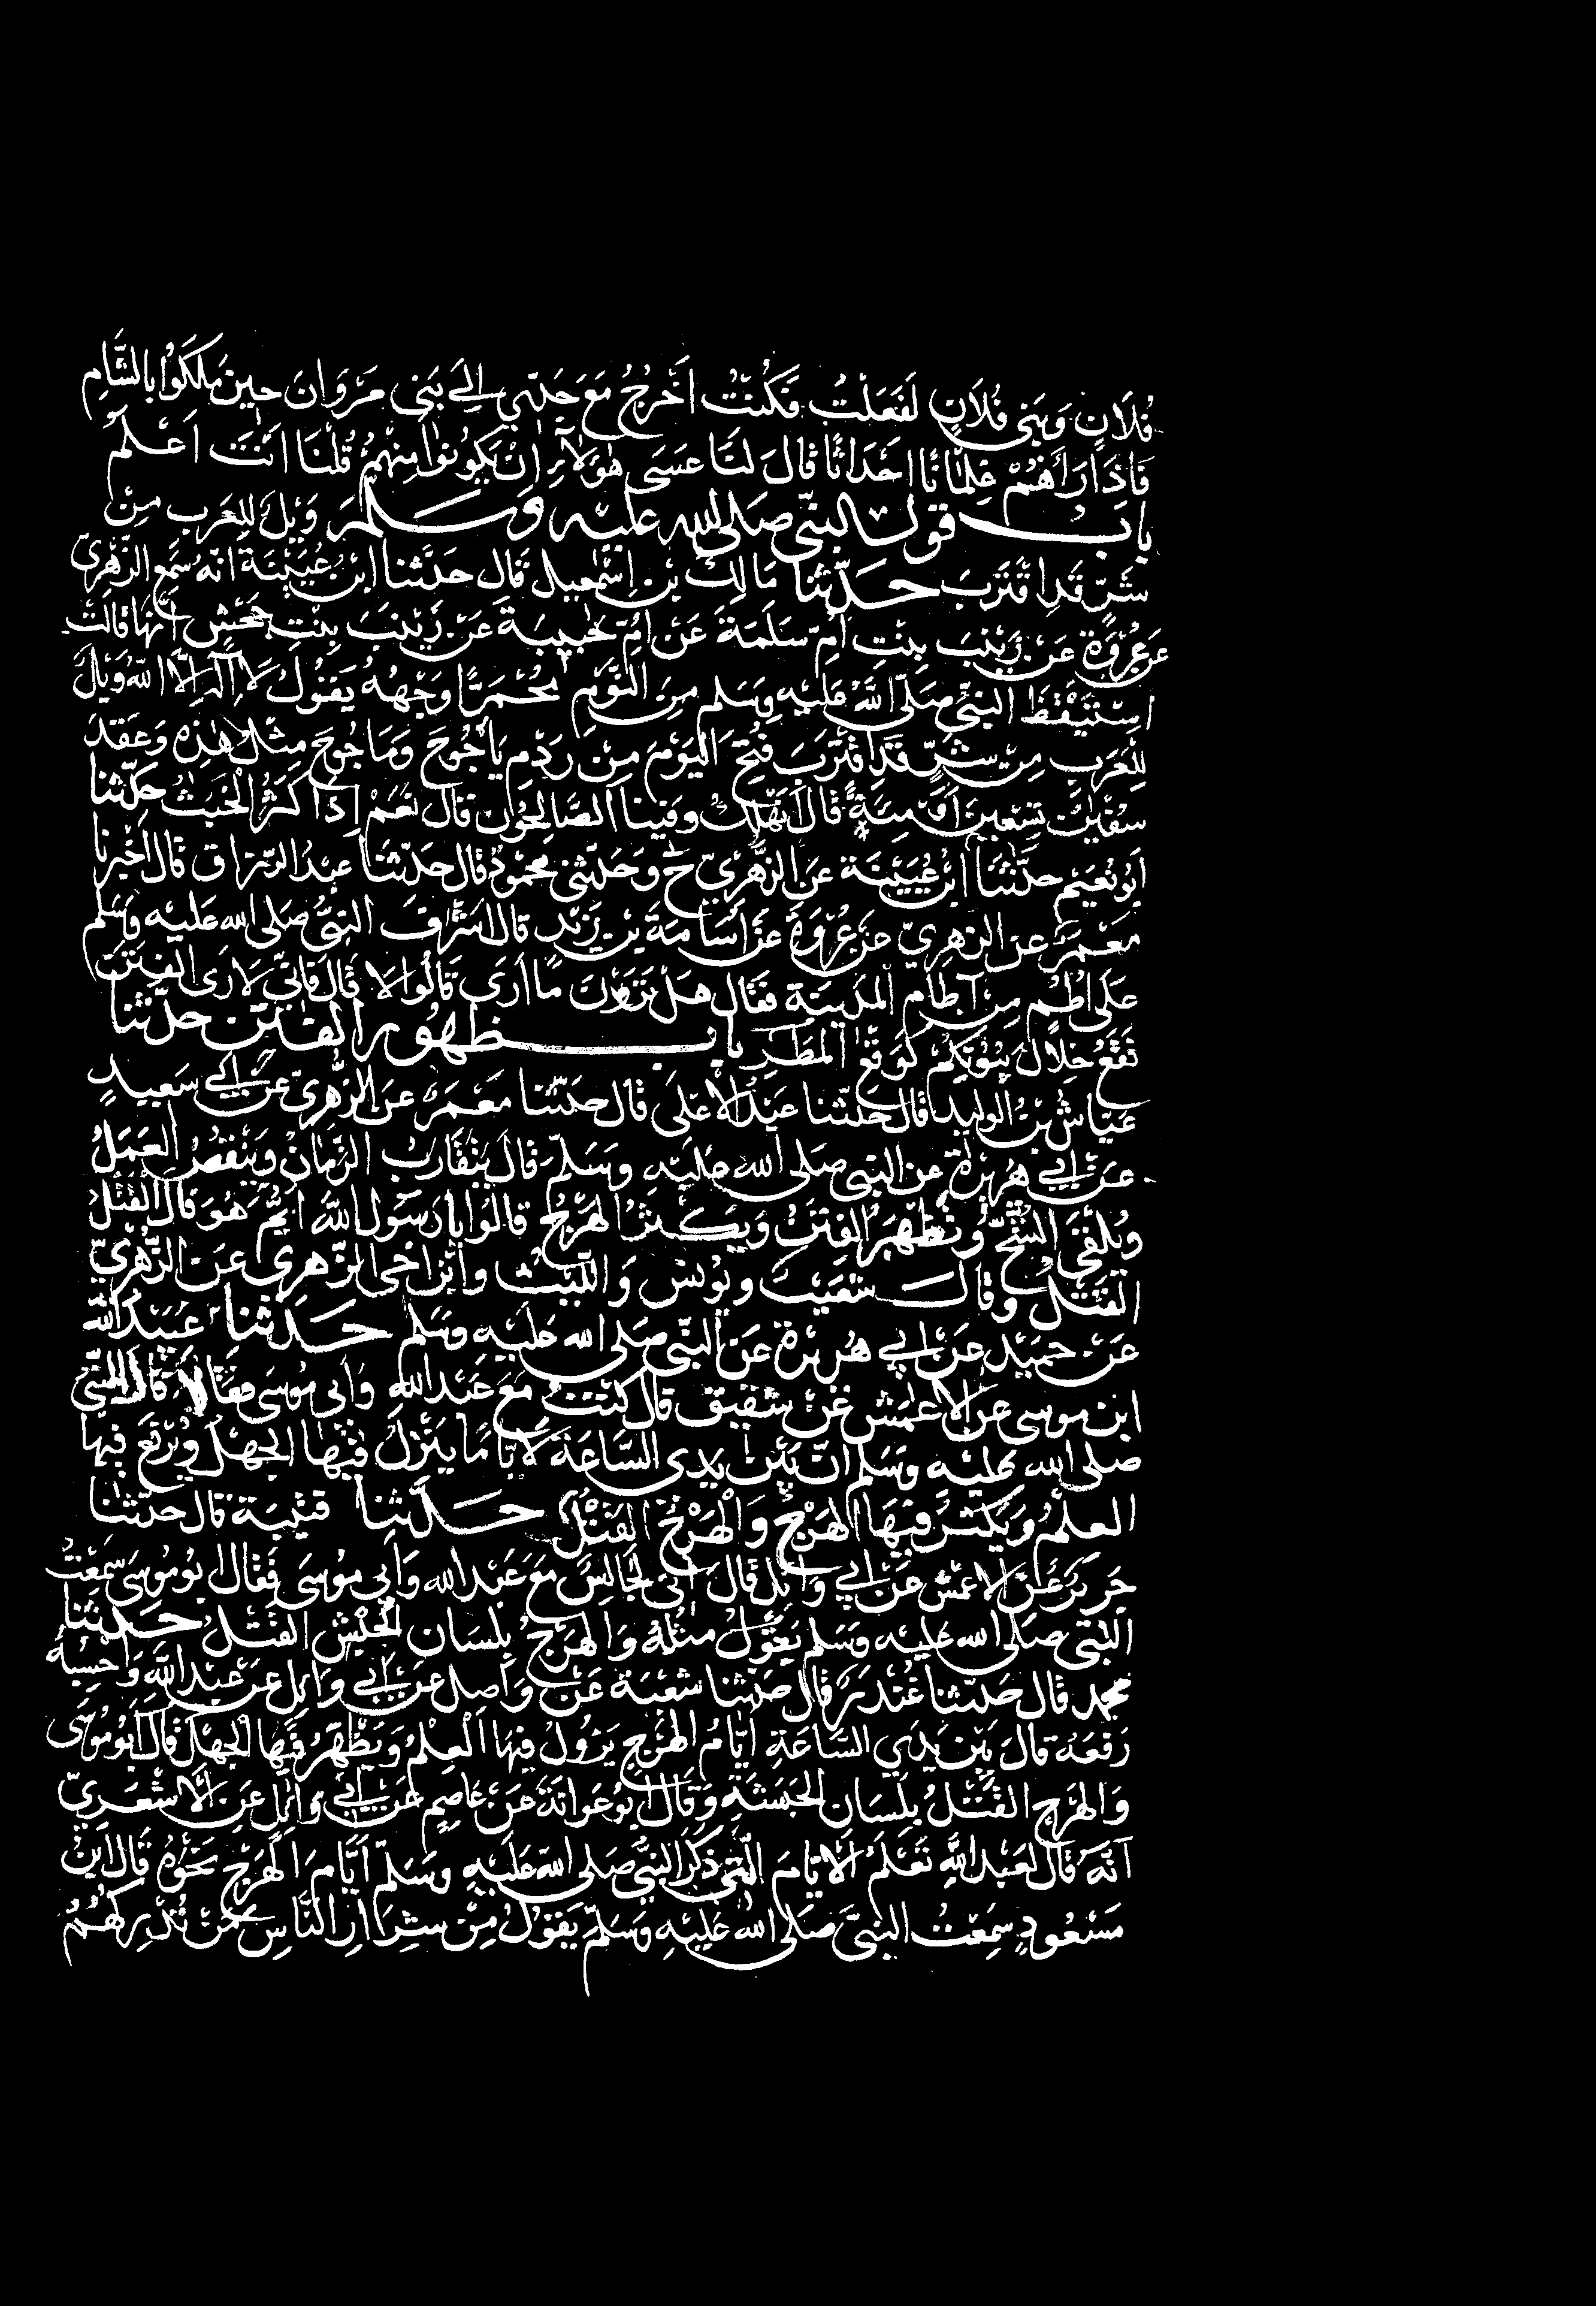 فُلَانٍ وَبَنِي فُلَانٍ لَفَعَلْتُ فَكُنْتُ أَخْرُجُ مَعَ جَدّي إلَى بَنِي مَرْوَانَ حينَ مَلَكَوُا بِالشَّامِ
فَاذَا رَاهُمْ غِلْمَانًا احْدَاثًا قَالَ لَنَا عَسَى هٰؤلَآءِ انْ يَكُونُوا مِنْهُمْ قُلْنَا انْتَ اَعْلَمُ
باب قول النبيّ صلى الله عليه وسلم وَيْلٌ لِلعَرَب مِنْ
شَرّ قَدِ اقْتَرَبَ حدّثنا مَالِكُ بْن اِسْمٰعيل قَال حدّثنا ابْنُ عُيَيْنَةَ انّه سَمِعَ الزّهْرِيّ
عَن عُرْوَة عَنْ زَيْنَبَ بِنْتِ أُمّ سَلَمَةَ عَنْ امّ حَبيبَةَ عَنْ زَيْنَبَ بِنْتِ جَحْشٍ انّهَا قَالَتْ
اسْتَيْقَظَ النبيّ صَلّى اللَّه عَلَيْه وَسَلم مِنَ النَّوْمِ مُحْمَرًّا وَجْهُهُ يَقُولُ لَا الٰه الَّا اللّه وَيْلٌ
لِلْعَرَبِ مِنْ شَرّ قَدِ اقْتَرَبَ فُتِحَ اليَوْمَ مِنْ رَدْمِ يَأْجُوجَ وَمَاجُوجَ مِثْلُ هٰذِهِ وَعَقَدَ
سُفْيٰنُ تِسْعِينَ اوْ مِئَةً قَالَ انَهْلِكُ وَفِينَا الصَّالِحُونَ قَالَ نَعَمْ إِذَا كَثُرَ الخَبَثُ حدّثنا
ابُو نُعَيْم حدّثنَا ابْنُ عُيَيْنَة عَنِ الزُّهْرِيّ ح وَحَدّثني محمودٌ قال حَدّثنَا عَبْدُ الرّزاق قال اخْبرنَا
مَعْمَرٌ عن الزهريّ عَنْ عُرْوَةَ عَنْ أُسَامَةَ بْن زَيْدٍ قال اشْرَفَ النبيُّ صلى الله عَلَيْه وَسَلم
عَلَى اُطُمٍ مِنْ آطَامِ المَدينَةِ فَقَال هَلْ تَرَوْنَ مَا أَرَى قَالُوا لَا قَالَ فَانّي لَارَى الفِتَنَ
تَقَعُ خِلَالَ بُيُوتِكُمْ كَوَقْعِ المَطَرِ باب ظهُور الفتن حدّثنا
عَيّاشُ بْنُ الوليد قال حدّثنا عَبْدُ الاعْلَى قال حدّثنا مَعْمَرٌ عَنِ الزُّهْرِيّ عَنْ سَعيدٍ
عَنْ أبي هُرَيْرَةَ عن النبيّ صَلى الله عليه وَسَلّم قَال يَتَقَارَبُ الزّمَانُ وَيَنْقُصُ العَمَلُ
وَيُلْقَى الشُّحُّ وَتَظْهَرُ الفِتَنُ وَيَكْثرُ الهَرْجُ قَالُوا يَا رَسُول اللَّه ايُّمَ هُوَ قَال القَتْلُ
القَتْلُ وقَالَ شُعَيْبٌ ويُونُسُ وَاللَّيْثُ وابْنُ اخِي الزُّهْرِي عَنِ الزُّهْرِيّ
عَنْ حُمَيْدٍ عَنْ ابي هُرَيْرَةَ عَن النّبيّ صَلى الله عَلَيْه وسَلم حَدَّثنا عُبَيْدُ اللّه
ابْن موسى عن الاعْمَش عَنْ شَقِيقٍ قَال كُنْتُ مَعَ عَبْد الله وَأبي مُوسَى فقَالَا قَالَ النبيّ
صلى الله عليْه وَسَلم انّ بَيْنَ يَدي السَّاعَة لَايّامًا يَنْزِلُ فيْهَا الجَهْلُ وَيُرْفَعُ فيهَا
العِلْمُ وَيَكْثُرُ فِيهَا الهَرْجُ وَالْهَرْجُ القَتْلُ حدَّثنا قتَيْبَة قال حدّثنا
جَرِيرٌ عَن الاعْمَش عَنْ ابي وَائِلٍ قَال انّي لَجَالِسٌ مَعَ عَبْد الله وَأبي مُوسَى فَقَال ابُو مُوسَى سَمِعْتُ
النّبيّ صَلى الله عليه وَسَلم يَقُولُ مِثْلهُ وَالهَرْجُ بِلِسَان الحَبَش القَتْلُ حَدثنا
محمد قال حَدثنا غُنْدَرٌ قال حَدثنا شُعْبَة عَنْ وَاصِل عَنْ ابي وَائِل عَنْ عَبْد اللّه وَاحْسِبُهُ
رَفَعَهُ قالَ بَيْن يَدَي السَّاعَةِ ايّامُ الهَرْجِ يَزُولُ فيهَا العِلْمُ وَيَظْهَرُ فِيهَا الجَهْلُ قَالَ ابُو مُوسَى
وَالهَرْجُ القَتْلُ بِلِسَان الحَبَشَة وَقَالَ ابُو عَوَانَة عَنْ عَاصِم عَنْ ابي وَائِل عَن الاشْعَرِيّ
انّهُ قَالَ لِعَبْد اللَّهِ تَعْلَمُ الايّامَ الّتي ذَكَرَ النّبيُّ صَلى اللّه عَلَيْهِ وسَلّم ايّامَ الهَرْجِ نَحْوَهُ قَالَ ابْنُ
مَسْعُودٍ سَمِعْتُ النبيّ صَلى الله عَلَيْهِ وَسَلّم يَقُولُ مِنْ شِرَارِ النَّاسِ مَنْ تُدْرِكُهُمُ